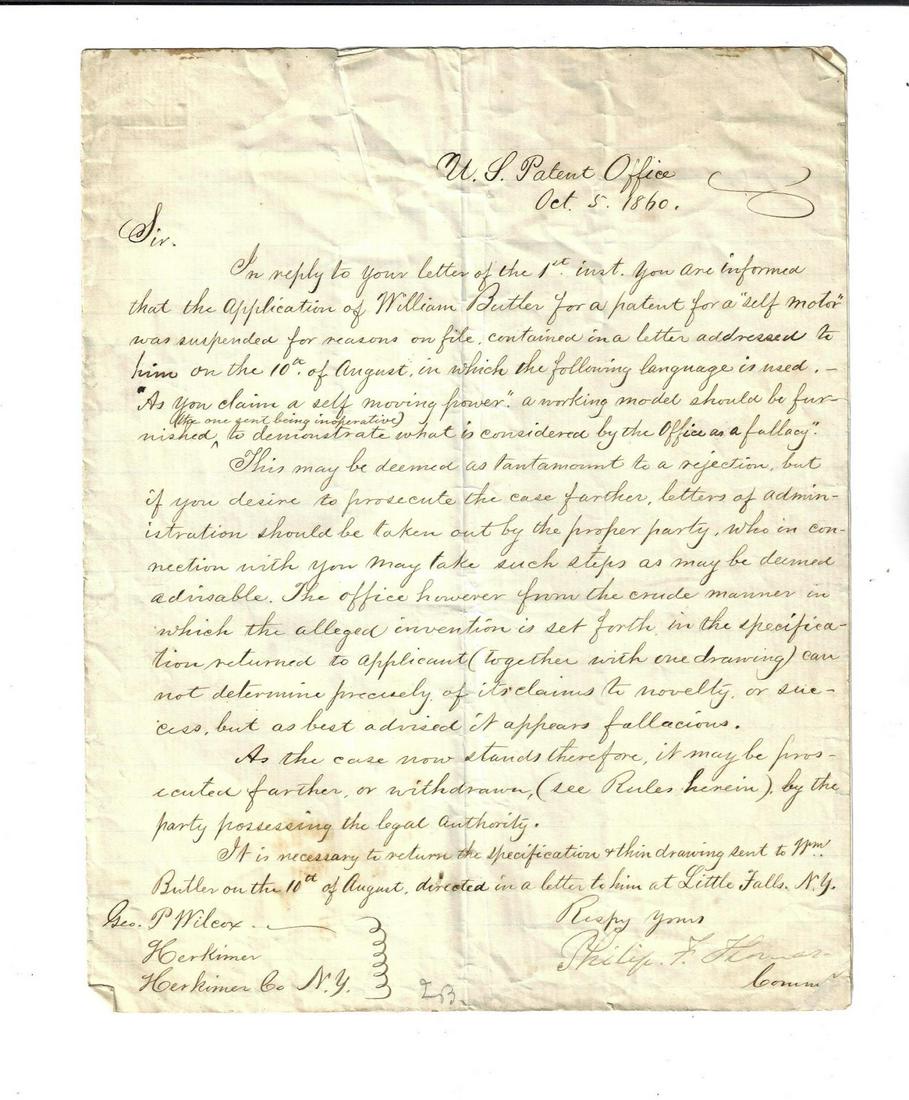 U. S. Patent Office
Oct. 5. 1860.
Sir.
In reply to your letter of the 1st. inst. you are informed
that the application of William Butler for a patent for a "self motor"
was suspended for reasons on file, contained in a letter addressed to
him on the 10th. of August, in which the following language is used. –
"As you claim a self moving power". a working model should be fur-
(the one sent being inoperative)
nished ^ to demonstrate what is considered by the Office as a fallacy".
This may be deemed as tantamount to a rejection, but
if you desire to prosecute the case farther, letters of admin-
istration should be taken out by the proper party, who in con-
nection with you may take such steps as may be deemed
advisable. The office however from the crude manner in
which the alleged invention is set forth in the specifica-
tion returned to applicant (together with one drawing) can
not determine precisely of its claims to novelty, or suc-
cess, but as best advised it appears fallacious.
As the case now stands therefore, it may be pros-
ecuted farther, or withdrawn, (see Rules herein) by the
party possessing the legal authority.
It is necessary to return the specification & thin drawing sent to Wm.
Butler on the 10th of August, directed in a letter to him at Little Falls. N.Y.
Respy Yours
Geo. P Wilcox.
Philip. F. Thomas
Herkimer
Comm
Herkimer Co N.Y.